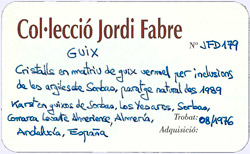 Col·lecció Jordi Fabre
GUIX
Nº JFD179
Cristalls en matriu de guix vermell per inclusions
de les argiles de Sorbas, paratge natural des 1989
Karst en guixos de Sorbas, Los Yesares, Sorbas,
Comarca Levante Almeriense, Almería,
Andalucía, España
Trobat: 08/1976
Adquisició: